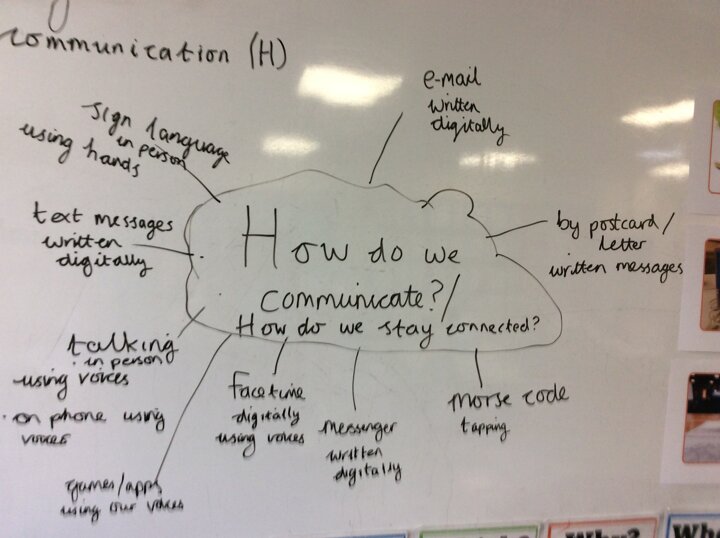 communication (H)
e-mail
written
digitally
sign language
in person
using hands
text messages
written
digitally
by postcard/
letter
written messages
How do we
communicate?/
How do we stay connected?
talking
· in person
using voices
· on phone using
voices
facetime
digitally
using voices
messenger
written
digitally
morse code
tapping
games/apps
using our voices
Why?
Whe